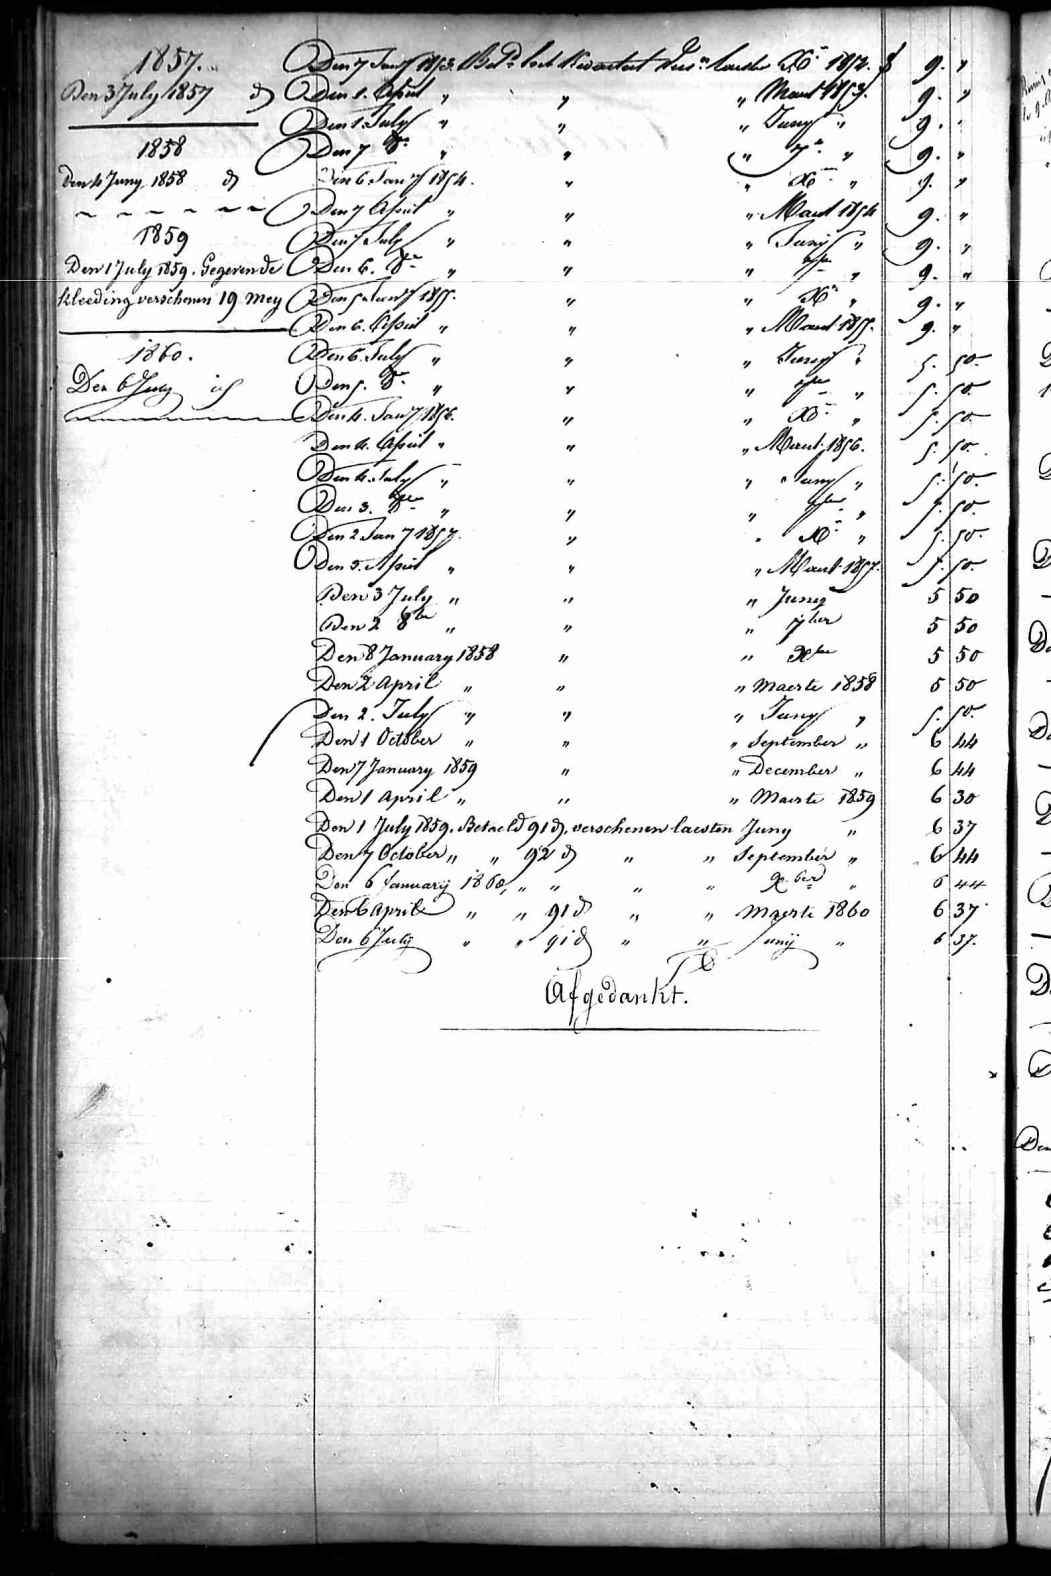 1857.
Den 3 July 1857 d
1858
den 4 Juny 1858 d
1859
Den 1 July 1859. Gegeven de
kleeding verschenen 19 Mey
1860.
Den 6 July
Den 7 Jan 1853. Bet het Kwartaal laesten Xr 1852. f 9. "
Den 1. April " " " Maert 1853. 9. "
Den 1. July " " " Juny " 9. "
Den 7 8re " " " 7re " 9. "
Den 6 Jany 1854. " " Xr " 9. "
Den 7 April " " " Maert 1854 9. "
Den 7 July " " " Juny " 9. "
Den 6. 8re " " " 7re " 9. "
Den 5 Jany 1855. " " Xr " 9. "
Den 6. April " " " Maert 1855. 9. "
Den 6. July " " " Juny " 5. 50.
Den 5. 8re " " " 7re " 5. 50.
Den 4. Jany 1856. " " Xr " 5. 50
Den 4. April " " " Maert 1856. 5. 50.
Den 4. July " " " Juny " 5. 50.
Den 3. 8re " " " 7re " 5. 50.
Den 2 Jany 1857. " " Xr " 5. 50.
Den 3. April " " " Maert 1857. 5. 50.
Den 3 July " " " Juny 5 50
Den 2 8bre " " " 7ber 5 50
Den 8 January 1858 " " Xber 5 50
Den 2 April " " " Maerte 1858 5 50
Den 2. July " " " Juny " 5. 50.
Den 1 October " " " September " 6 44
Den 7 January 1859 " " December " 6 44
Den 1 April " " " Maerte 1859 6 30
Den 1 July 1859. Betaeld 91 d. verschenen laesten Juny " 6 37
Den 7 October " " 92 d " " September " 6 44
Den 6 January 1860, " " " " Xber " 6 44
Den 6 April " " 91 d " " Maerte 1860 6 37
Den 6 July " " 91 d " " Junij " 6 37.
Afgedankt.